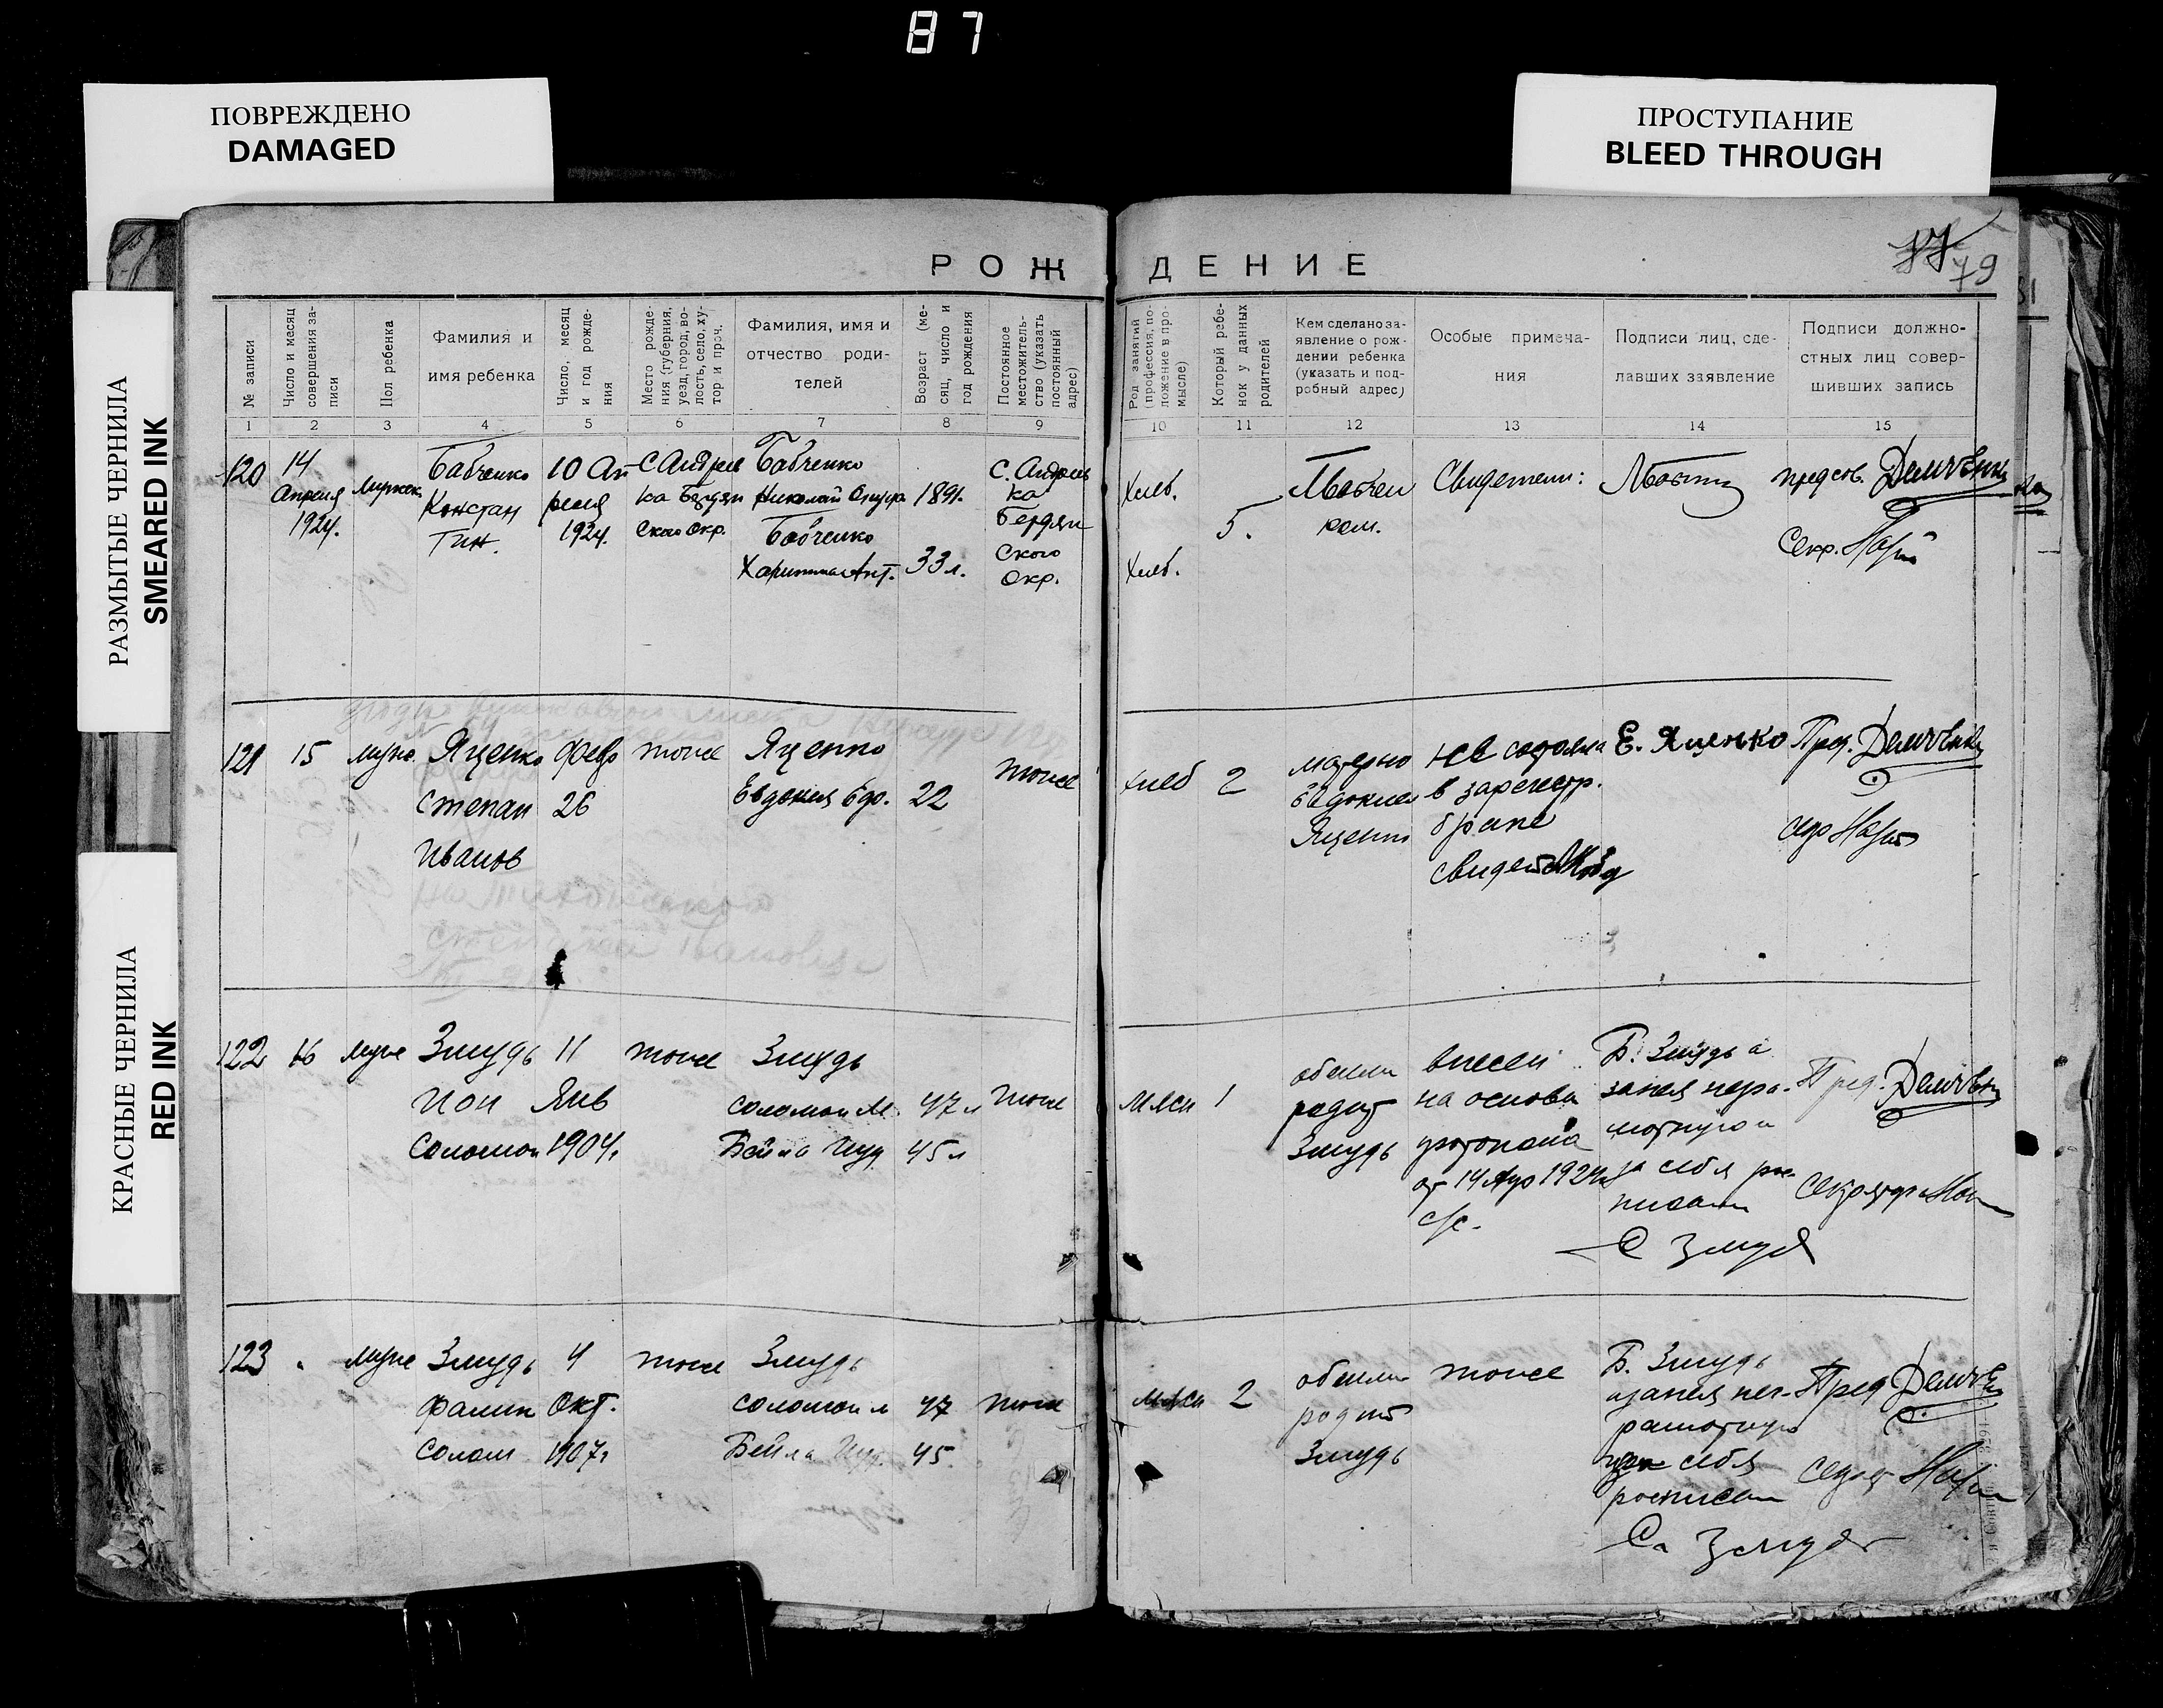 87
ПОВРЕЖДЕНО
DAMAGED
ПРОСТУПАНИЕ
BLEED THROUGH
РАЗМЫТЫЕ ЧЕРНИЛА
SMEARED INK
КРАСНЫЕ ЧЕРНИЛА
RED INK
РОЖДЕНИЕ
79
№ записи
Число и месяц
совершения за-
писи
Пол ребенка
Фамилия и
имя ребенка
Число, месяц
и год рожде-
ния
Место рожде-
ния (губерния,
уезд, город, во-
лость, село, ху-
тор и проч.
Фамилия, имя и
отчество роди-
телей
Возраст (ме-
сяц, число и
год рождения
Постоянное
местожитель-
ство (указать
постоянный
адрес)
Род занятий
(профессия, по-
ложение в про-
мысле)
Который ребе-
нок у данных
родителей
Кем сделано за-
явление о рож-
дении ребенка
(указать и под-
робный адрес)
Особые примеча-
ния
Подписи лиц, сде-
лавших заявление
Подписи должно-
стных лиц совер-
шивших запись
1 2 3 4 5 6 7 8 9 10 11 12 13 14 15
120
14
Апреля
1924.
Мужск.
Бабченко
Констан
тин.
10 Ап
реля
1924.
С Андреев
ка Бердян
ского окр.
Бабченко
Николай
Бабченко
Ант.
1891.
33 л.
С. Андреев
ка
Бердян
ского
Окр.
Хлеб.
Хлеб.
5.
Свидетели:
предсов. Демченко
Секр.
121
15
муж.
Яценко
Степан
Иванов
февр
26
тоже
Яценко
Евдокия
22
тоже
хлеб
2
матерью
Евдокией
Яценко
не состояла
в зарегистр.
браке
Е. Яценко
Пред. Демченко
122
16
муже
Змудь
Ион
Соломон
11
Янв
1904.
тоже
Змудь
Соломон М.
Бейла Иуд.
47 л
45 л
тоже
мясн
1
обеими
родит
Змудь
внесен
на основан
протокола
от 14 Апр 1924
с/с.
Б. Змудь а
за нея негра-
мотную и
за себя рос-
писался
С Змудь
Пред. Демченко
Секретарь
123
муже
Змудь
Соломон
4
Окт.
1907г
тоже
Змудь
Соломон м
Бейла Иуд.
47
45
тоже
мясн
2
обеими
родит
Змудь
тоже
Б. Змудь
за нея нег-
рамотную
себя
росписался
Змудь
Пред Демченко